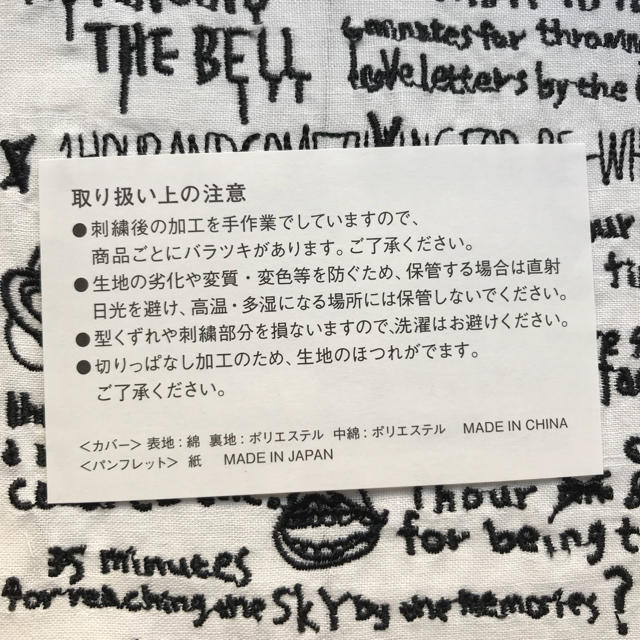 THE BELL
minutes for throwin
love letters by the
1 HOUR AND SOMETHING FOR BE-WH
取り扱い上の注意
●刺繍後の加工を手作業でしていますので、
商品ごとにバラツキがあります。ご了承ください。
●生地の劣化や変質・変色等を防ぐため、保管する場合は直射
日光を避け、高温・多湿になる場所には保管しないでください。
●型くずれや刺繍部分を損ないますので、洗濯はお避けください。
●切りっぱなし加工のため、生地のほつれがでます。
ご了承ください。
<カバー> 表地:綿 裏地:ポリエステル 中綿:ポリエステル MADE IN CHINA
<パンフレット> 紙 MADE IN JAPAN
1 hour
for being t
35 minutes
for reaching the SKY by the memories?